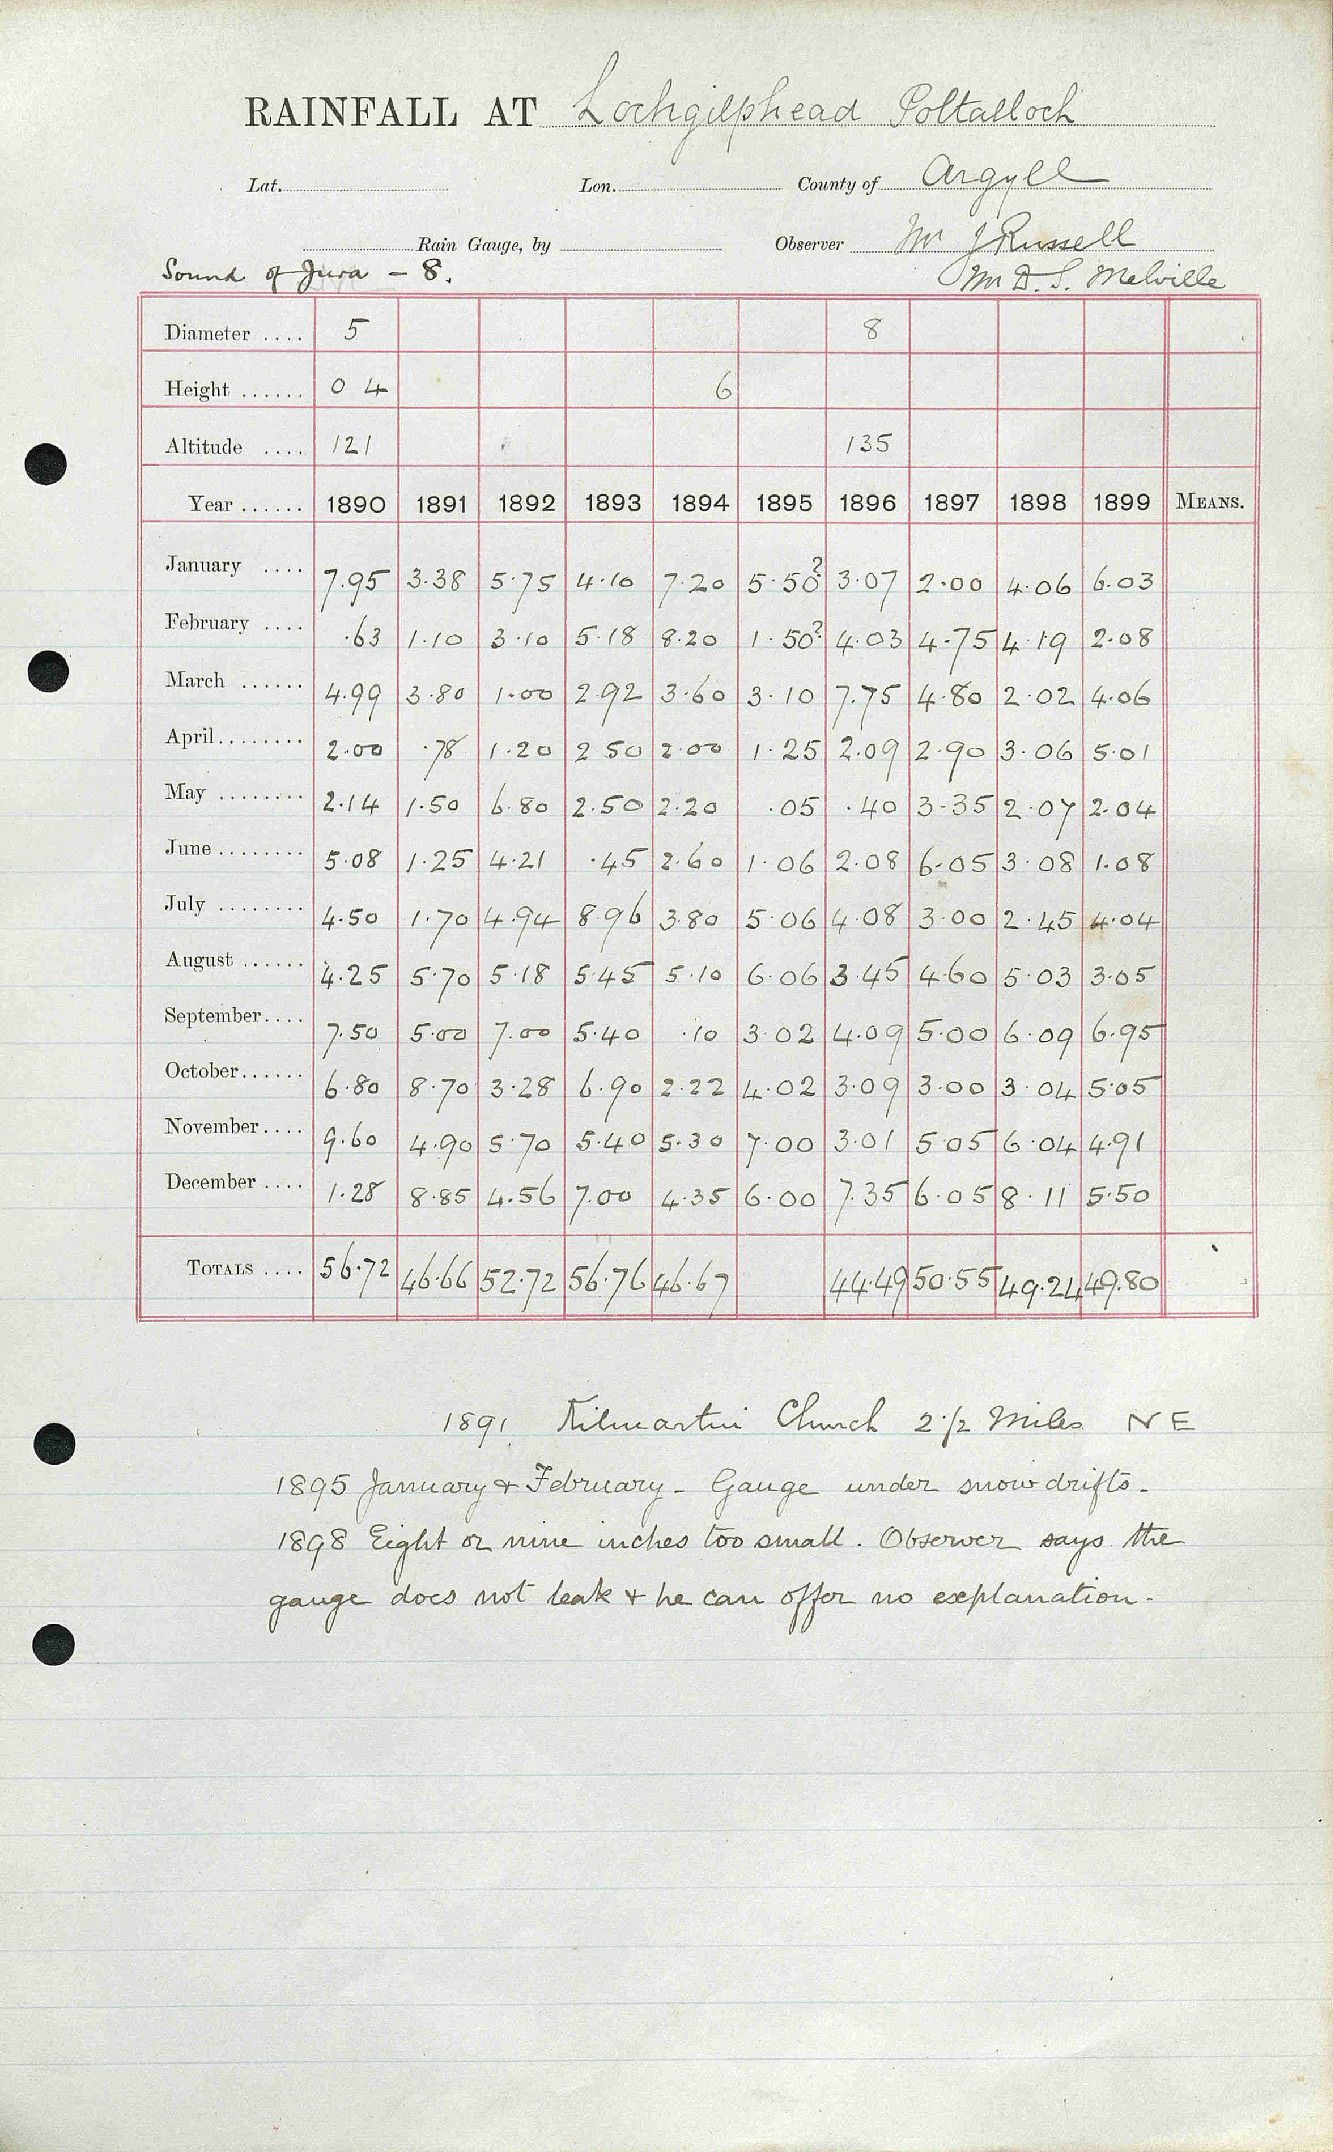 RAINFALL AT Lochgilphead Poltalloch
Lat. Lon. County of Argyll
Rain Gauge, by Observer Mr J Russell
Sound of Jura - 8. Mr D. S. Melville
Diameter .... 5 8
Height ...... 0 4 6
Altitude .... 121 135
Year ...... 1890 1891 1892 1893 1894 1895 1896 1897 1898 1899 MEANS.
January .... 7.95 3.38 5.75 4.10 7.20 5.50? 3.07 2.00 4.06 6.03
February .... .63 1.10 3.10 5.18 8.20 1.50? 4.03 4.75 4.19 2.08
March ...... 4.99 3.80 1.00 2.92 3.60 3.10 7.75 4.80 2.02 4.06
April........ 2.00 .78 1.20 2.50 2.00 1.25 2.09 2.90 3.06 5.01
May ........ 2.14 1.50 6.80 2.50 2.20 .05 .40 3.35 2.07 2.04
June ........ 5.08 1.25 4.21 .45 2.60 1.06 2.08 6.05 3.08 1.08
July ........ 4.50 1.70 4.94 8.96 3.80 5.06 4.08 3.00 2.45 4.04
August ...... 4.25 5.70 5.18 5.45 5.10 6.06 3.45 4.60 5.03 3.05
September.... 7.50 5.00 7.00 5.40 .10 3.02 4.09 5.00 6.09 6.95
October...... 6.80 8.70 3.28 6.90 2.22 4.02 3.09 3.00 3.04 5.05
November.... 9.60 4.90 5.70 5.40 5.30 7.00 3.01 5.05 6.04 4.91
December .... 1.28 8.85 4.56 7.00 4.35 6.00 7.35 6.05 8.11 5.50
TOTALS .... 56.72 46.66 52.72 56.76 46.67 44.49 50.55 49.24 49.80
1891 Kilmartin Church 2 1/2 Miles NE
1895 January & February - Gauge under snow drifts.
1898 Eight or nine inches too small. Observer says the
gauge does not leak & he can offer no explanation.